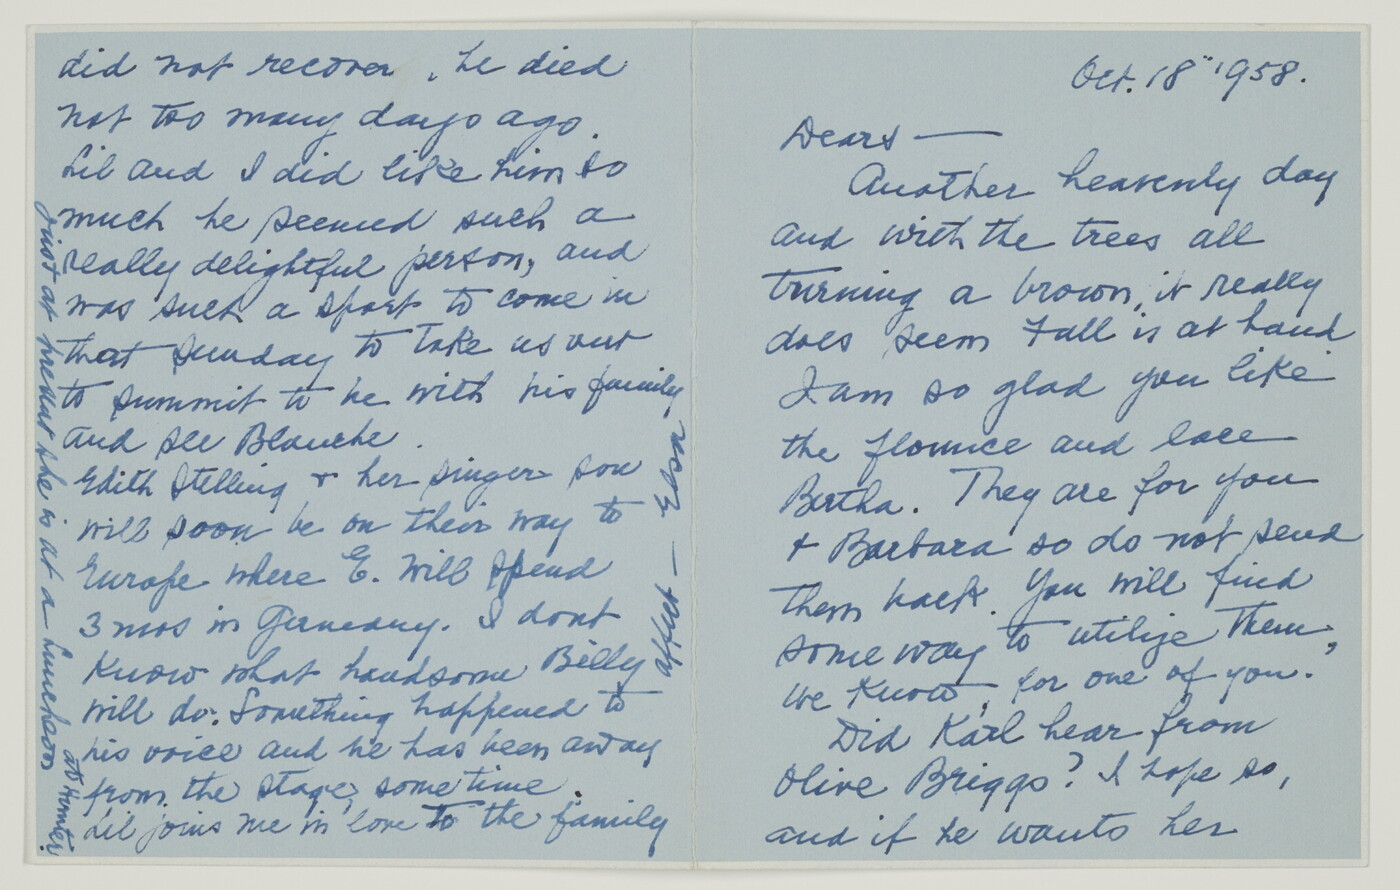 Oct. 18" 1958.
Dears —
Another heavenly day
and with the trees all
turning a brown, it really
does seem Fall is at hand
I am so glad you like
the flounce and lace
Bertha. They are for you
+ Barbara so do not send
them back. You will find
some way to utilize them,
we know, for one of you.
Did Karl hear from
Olive Briggs? I hope so,
and if he wants her
did not recover, he died
not too many days ago.
Lil and I did like him so
much he seemed such a
really delightful person, and
was such a sport to come in
that Sunday to take us out
to Summit to be with his family
and see Blanche.
Edith Stelling + her singer son
will soon be on their way to
Europe where E. will spend
3 mos in Germany. I dont
know what handsome Billy
will do. Something happened to
his voice and he has been away
from the stage, sometime.
Lil joins me in love to the family
affect —
just at present she is at a luncheon
at Hunter.